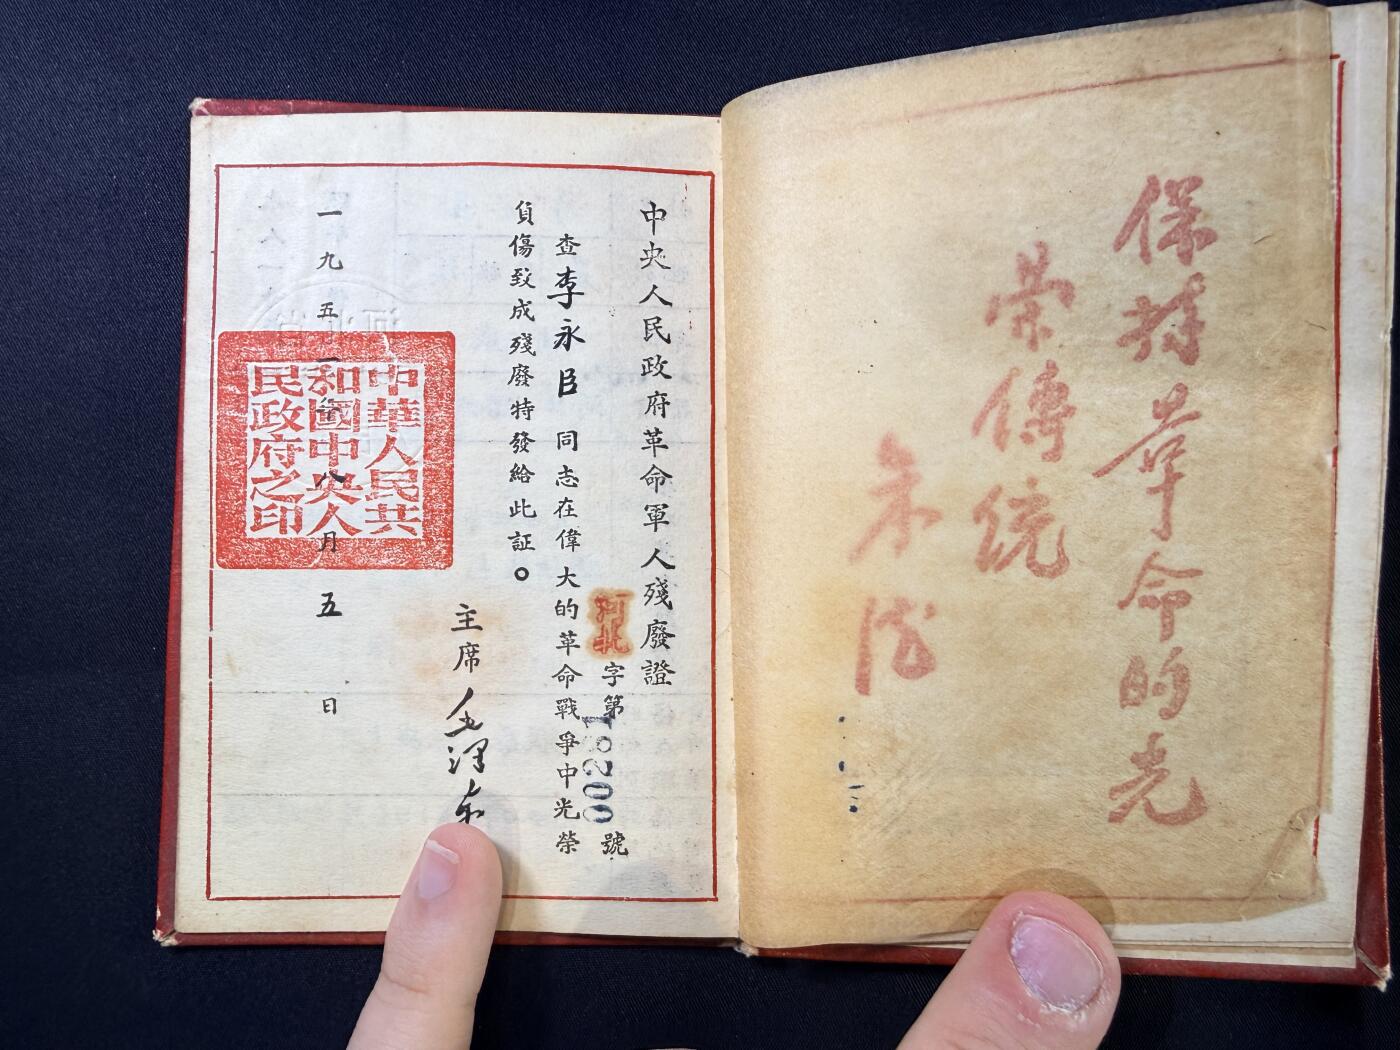 保持革命的光
荣傳統
朱德
中央人民政府革命軍人殘廢證
河北字第00281號
查李永臣同志在偉大的革命戰爭中光榮
負傷致成殘廢特發給此証。
主席毛澤东
一九五二年八月五日
中華人民共
和國中央人
民政府之印